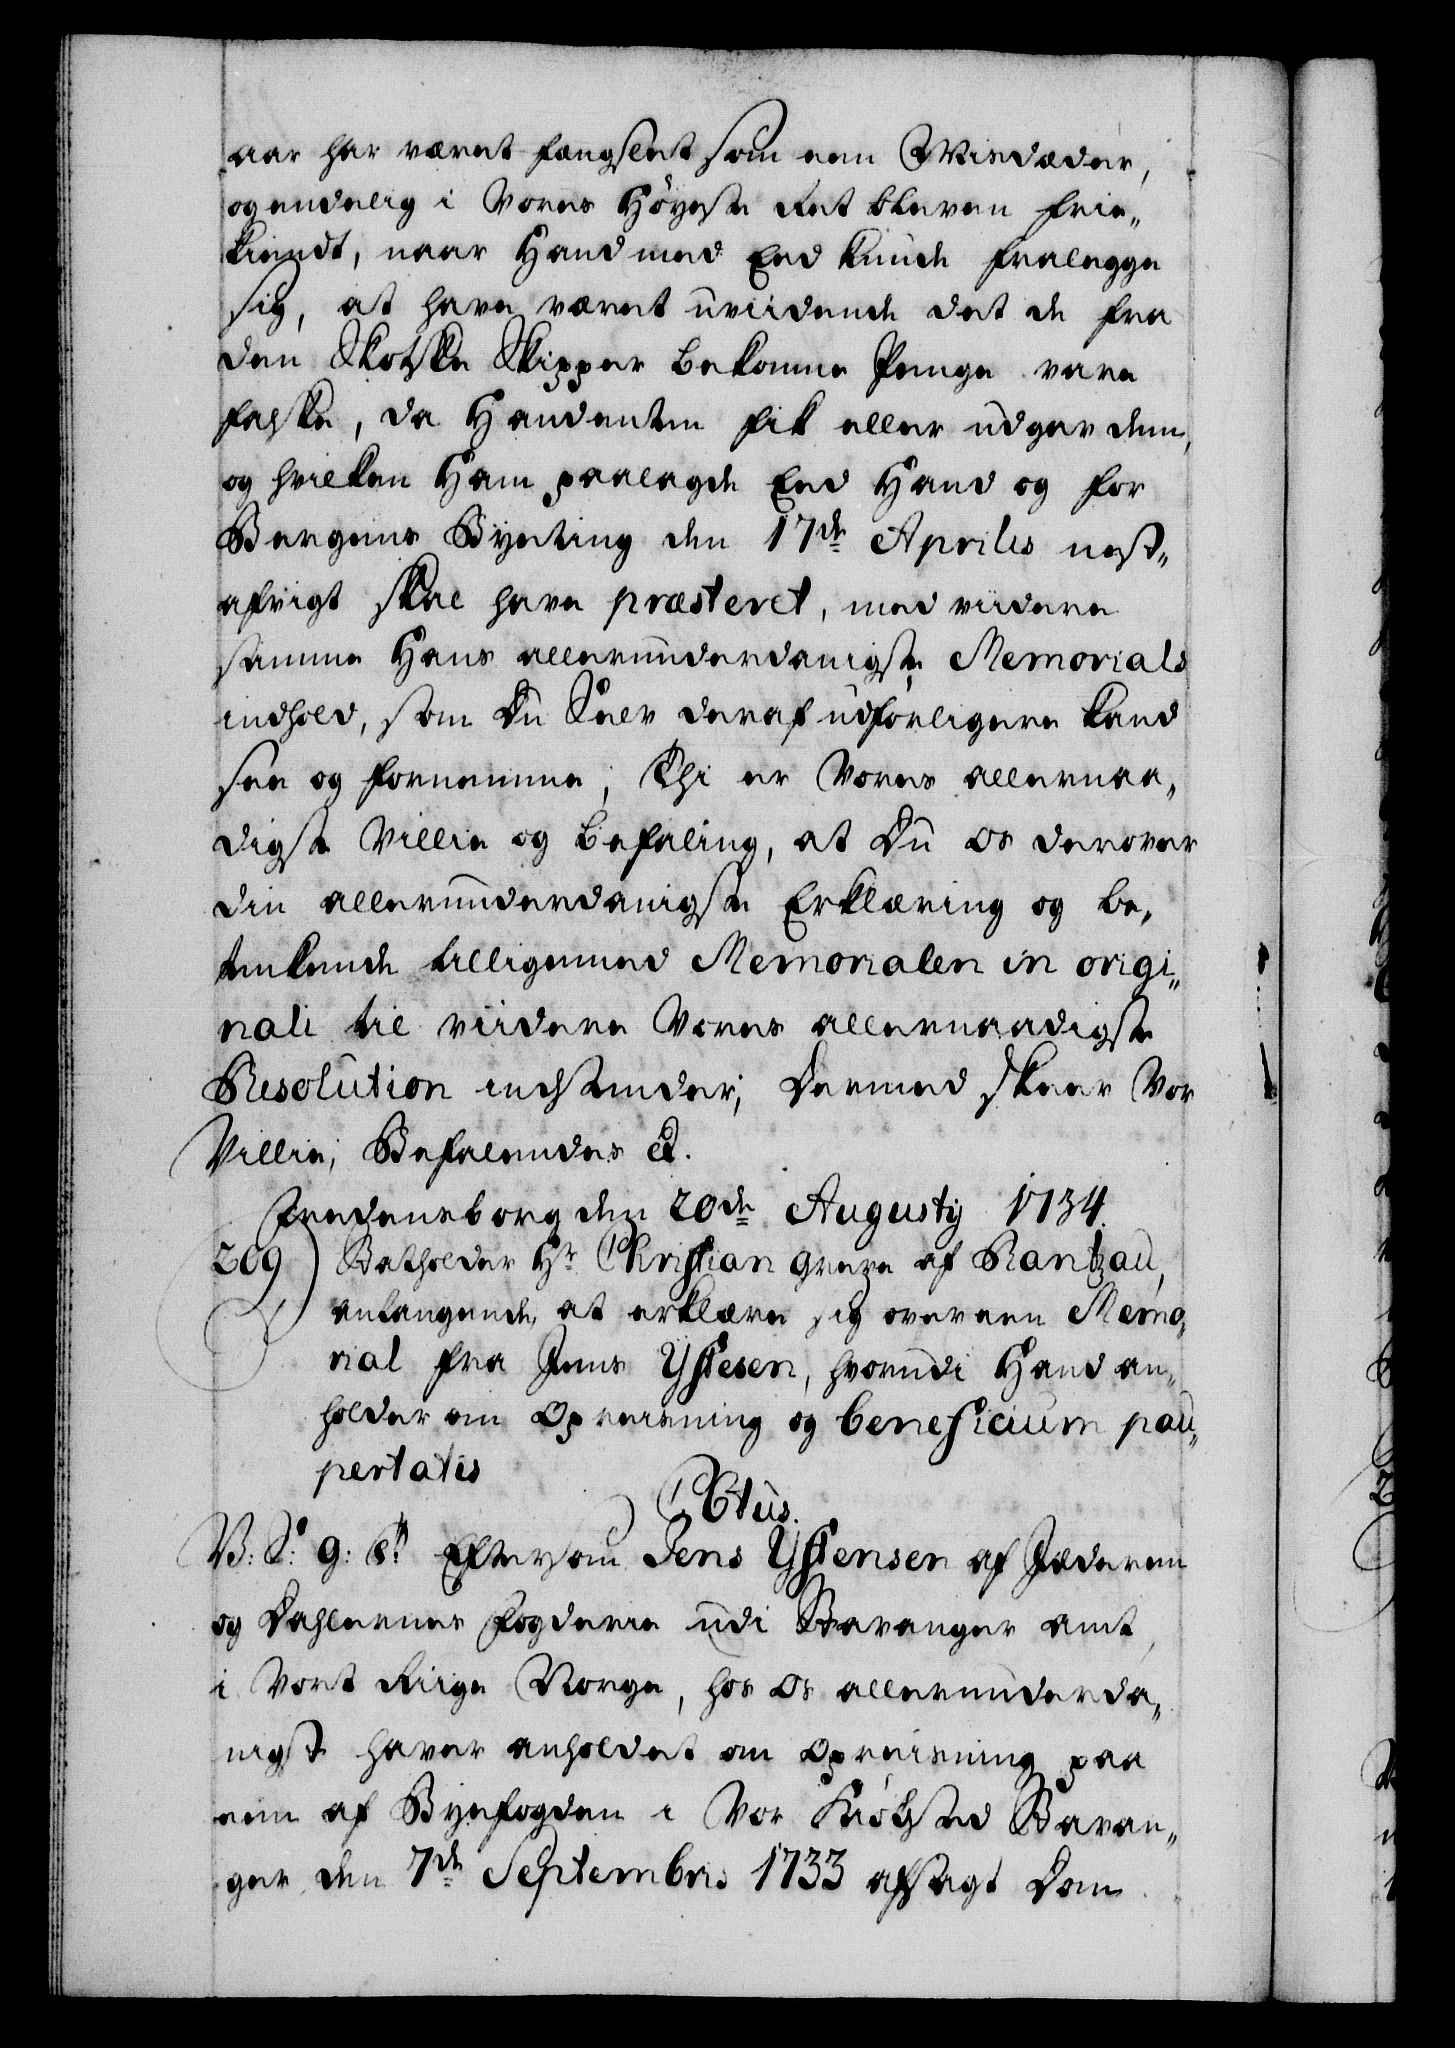 aar har været fengslet som een Misdæder,
og endelig i Vores Høyeste Ret bleven frie„
kiendt, naar Hand med Eed kunde fralegge
sig, at have været uviidende det de fra
den Skotske Skipper bekomne Penge vare
falske, da Hand enten fik eller udgav dem,
og hvilken Ham paalagde Eed Hand og for
Bergens Byeting den 17de Aprilis nest„
afvigt skal have præsteret, med viidere
samme Hans allerunderdanigste Memorials
indhold, som Du Selv deraf udførligere kand
see og fornemme; Thi er Vores allernaa„
digste Villie og befaling, at Du os derover
din allerunderdanigste Erklæring og be„
tenkende tilligemed Memorialen in origi„
nali til viidere Vores allernaadigste
Resolution indsender; Dermed skeer Vor
Villie; Befalendes etc.
Fredensborg den 20de Augustij 1734.
209) Statholder Hr Christian Greve af Rantzau,
anlangende, at erklære sig over een Memo„
rial fra Jens Ystesen, hvorudi Hand an„
holder om Opreisning og beneficium pau„
pertatis
CStus.
V: S: G: T: Eftersom Jens Ystensen af Jæderen
og Dahlernes fogderie udi Stavanger amt,
i Vort Riige Norge, hos Os allerunderda„
nigst haver anholdet om Opreisning paa
een af Byefogden i Vor Kiøbsted Stavan„
ger den 7de Septembris 1733 afsagt Dom